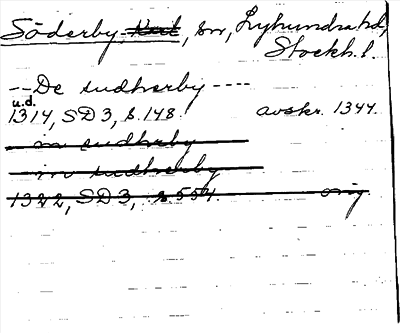 Söderby-Karl, sn, Lyhundra hd,
Stockh. l.
--De sudherby ----
u.d.
1314, SD 3, s. 148. avskr. 1344.
m sudherby
in sudherby
1322, SD 3, s 554. orig.